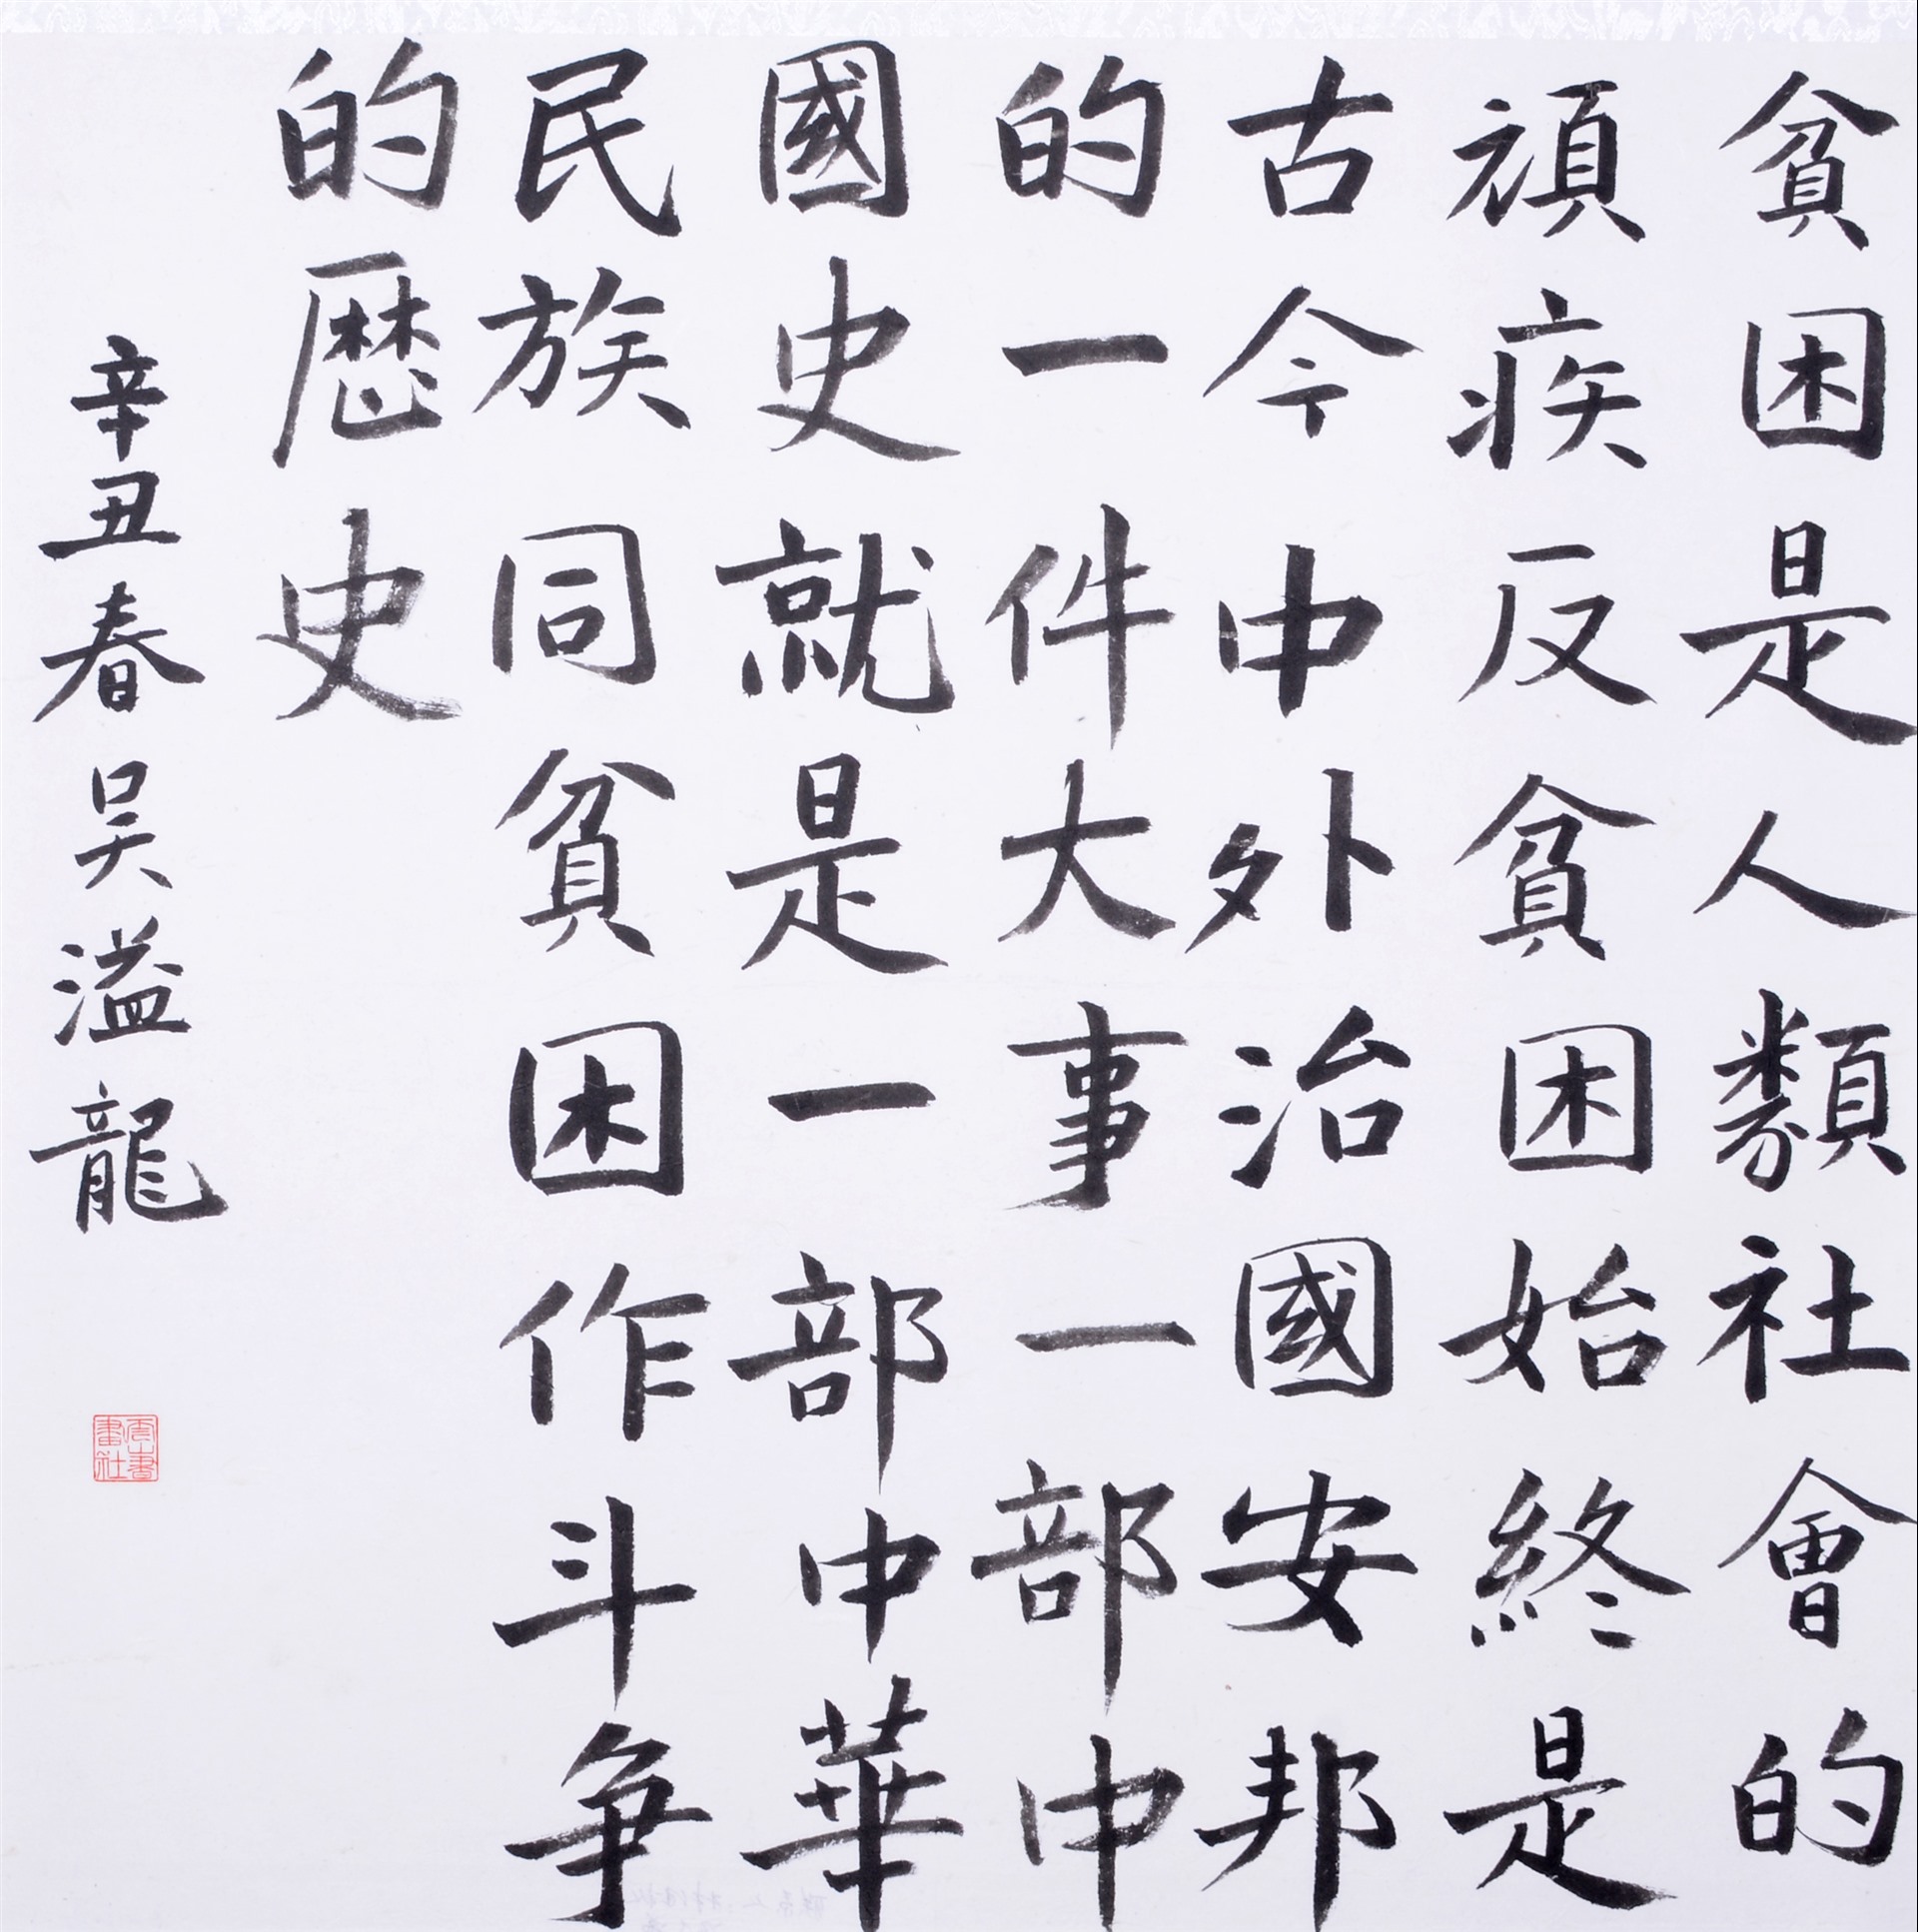 貧困是人類社會的
頑疾反貧困始終是
古今中外治國安邦
的一件大事一部中
國史就是一部中華
民族同貧困作斗争
的歴史
辛丑春吴溢龍